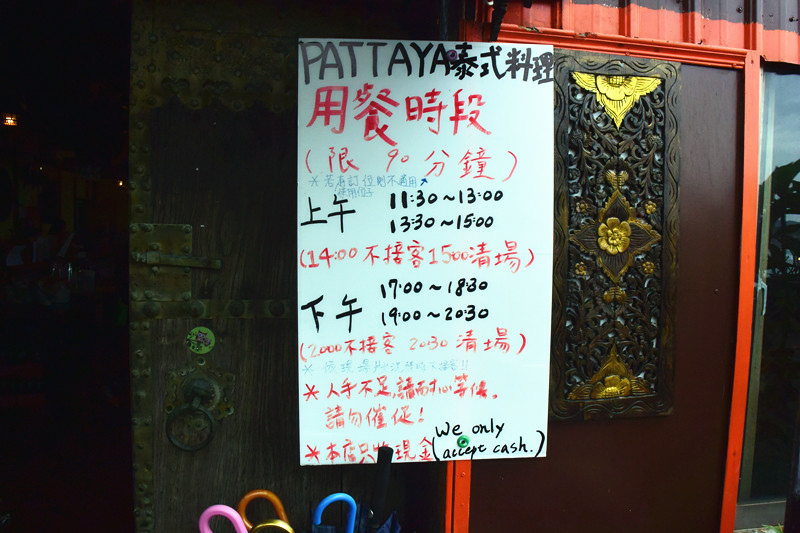 PATTAYA泰式料理
用餐時段
(限 90分鐘)
上午 11:30~13:00
13:30~15:00
(14:00不接客1500清場)
下午 17:00~18:30
19:00~20:30
(2000不接客 2030清場)
*人手不足,請耐心等候。
請勿催促!
*本店只收現金(We only
accept cash.)